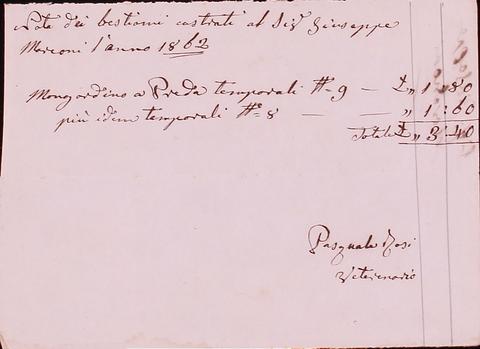 Nota dei bestiami castrati al Sigr Giuseppe
Marconi l'anno 1862
Mongardino a Preda temporali N. 9 — £ „ 1 „ 80
più idem temporali N. 8 — — „ 1 : 60
Totale £ „ 3 : 40
Pasquale Rosi
Veterenario